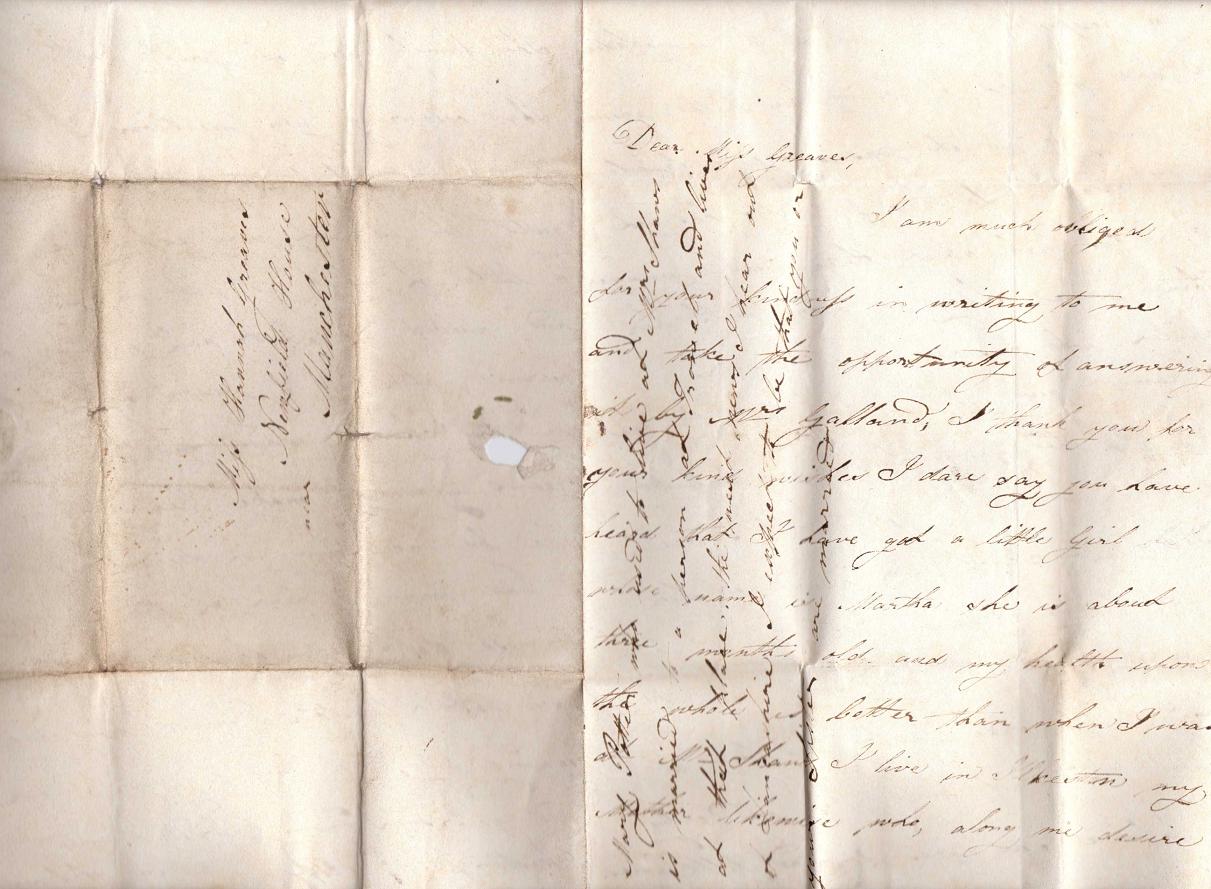 Miss Hannah Greaves
Nenfield House
near Manchester
Dear Miss Greaves,
I am much obliged
for your kindness in writing to me
and take the opportunity of answering
it by Mrs Galland, I thank you for
your kind wishes I dare say you have
heard that I have got a little Girl
whose name is Martha she is about
three months old and my health upon
the whole is better than when I was
at Mrs Shaws I live in Ilkeston my
Mother likewise who, along me desire
Mary Potter who used to live at Mrs Shaws
is married to a person and lives
at that place, the next news I hear out
of Lancashire I expect to be that you or
your Sister are married